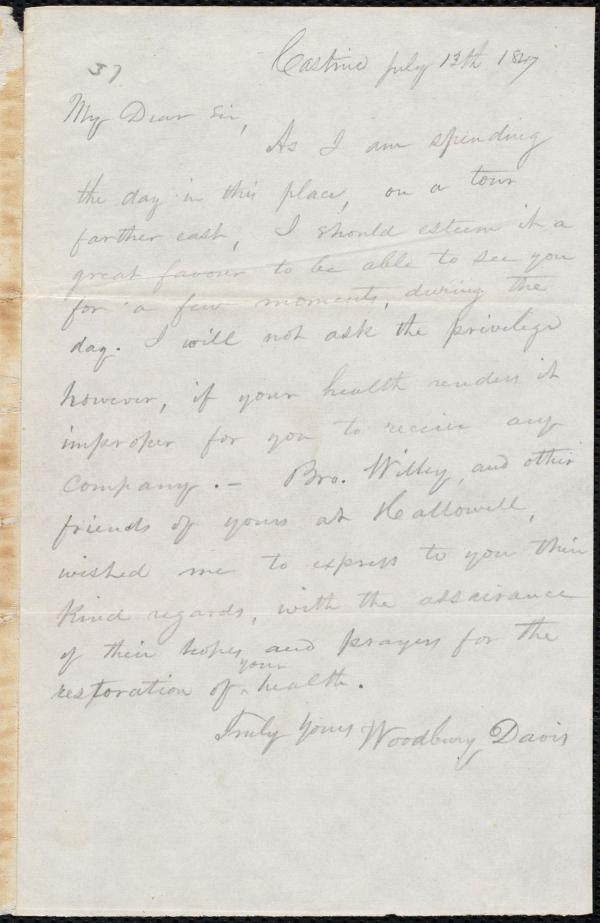 37
Castine July 13th 1847
My Dear Sir,
As I am spending
the day in this place, on a tour
farther east, I should esteem it a
great favour to be able to see you
for a few moments, during the
day. I will not ask the privilege
however, if your health renders it
improper for you to receive any
company. – Bro. Willey, and other
friends of yours at Hallowell,
wished me to express to you their
kind regards, with the assurance
of their hopes and prayers for the
your
restoration of ^ health.
Truly Yours Woodbury Davis